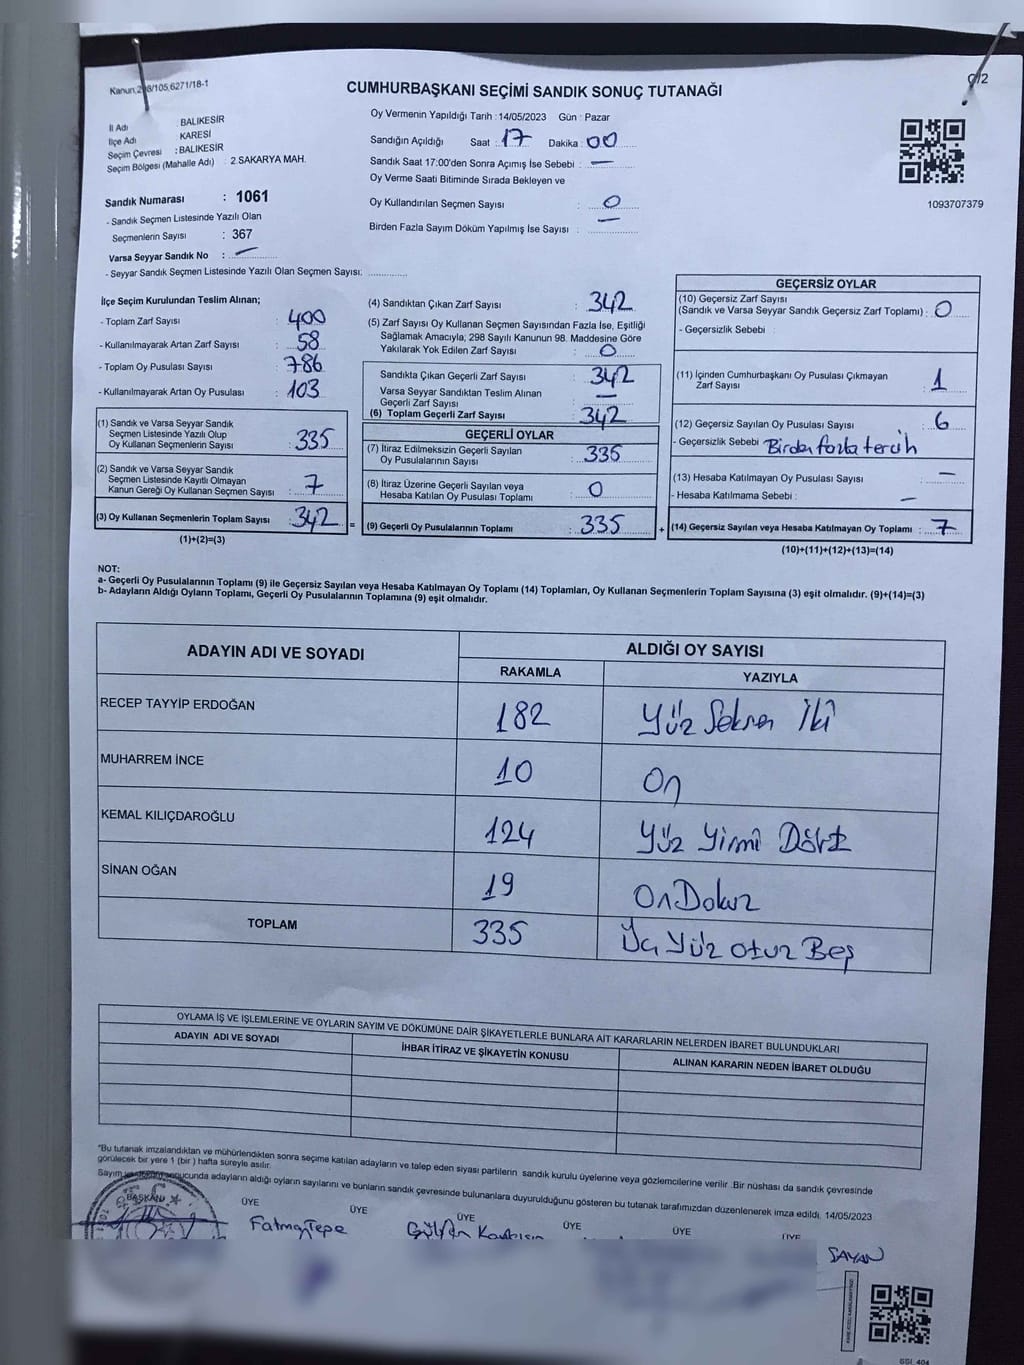 Kanun,298/105,6271/18-1
O/2
CUMHURBAŞKANI SEÇİMİ SANDIK SONUÇ TUTANAĞI
İl Adı : BALIKESİR
İlçe Adı : KARESİ
Seçim Çevresi : BALIKESİR
Seçim Bölgesi (Mahalle Adı) : 2.SAKARYA MAH.
Sandık Numarası : 1061
- Sandık Seçmen Listesinde Yazılı Olan
Seçmenlerin Sayısı : 367
Varsa Seyyar Sandık No : —
- Seyyar Sandık Seçmen Listesinde Yazılı Olan Seçmen Sayısı: ............
Oy Vermenin Yapıldığı Tarih : 14/05/2023 Gün : Pazar
Sandığın Açıldığı Saat : 17 Dakika : 00
Sandık Saat 17:00'den Sonra Açımış İse Sebebi : —
Oy Verme Saati Bitiminde Sırada Bekleyen ve
Oy Kullandırılan Seçmen Sayısı : 0
Birden Fazla Sayım Döküm Yapılmış İse Sayısı : —
1093707379
İlçe Seçim Kurulundan Teslim Alınan;
- Toplam Zarf Sayısı : 400
- Kullanılmayarak Artan Zarf Sayısı : 58
- Toplam Oy Pusulası Sayısı : 786
- Kullanılmayarak Artan Oy Pusulası : 103
(1) Sandık ve Varsa Seyyar Sandık
Seçmen Listesinde Yazılı Olup
Oy Kullanan Seçmenlerin Sayısı : 335
(2) Sandık ve Varsa Seyyar Sandık
Seçmen Listesinde Kayıtlı Olmayan
Kanun Gereği Oy Kullanan Seçmen Sayısı : 7
(3) Oy Kullanan Seçmenlerin Toplam Sayısı : 342 =
(1)+(2)=(3)
(4) Sandıktan Çıkan Zarf Sayısı : 342
(5) Zarf Sayısı Oy Kullanan Seçmen Sayısından Fazla İse, Eşitliği
Sağlamak Amacıyla; 298 Sayılı Kanunun 98. Maddesine Göre
Yakılarak Yok Edilen Zarf Sayısı : 0
Sandıkta Çıkan Geçerli Zarf Sayısı : 342
Varsa Seyyar Sandıktan Teslim Alınan
Geçerli Zarf Sayısı : —
(6) Toplam Geçerli Zarf Sayısı : 342
GEÇERLİ OYLAR
(7) İtiraz Edilmeksizin Geçerli Sayılan
Oy Pusulalarının Sayısı : 335
(8) İtiraz Üzerine Geçerli Sayılan veya
Hesaba Katılan Oy Pusulası Toplamı : 0
(9) Geçerli Oy Pusulalarının Toplamı : 335 +
GEÇERSİZ OYLAR
(10) Geçersiz Zarf Sayısı
(Sandık ve Varsa Seyyar Sandık Geçersiz Zarf Toplamı) : 0
- Geçersizlik Sebebi :
(11) İçinden Cumhurbaşkanı Oy Pusulası Çıkmayan
Zarf Sayısı : 1
(12) Geçersiz Sayılan Oy Pusulası Sayısı : 6
- Geçersizlik Sebebi : Birden fazla tercih
(13) Hesaba Katılmayan Oy Pusulası Sayısı : —
- Hesaba Katılmama Sebebi : —
(14) Geçersiz Sayılan veya Hesaba Katılmayan Oy Toplamı : 7
(10)+(11)+(12)+(13)=(14)
NOT:
a- Geçerli Oy Pusulalarının Toplamı (9) ile Geçersiz Sayılan veya Hesaba Katılmayan Oy Toplamı (14) Toplamları, Oy Kullanan Seçmenlerin Toplam Sayısına (3) eşit olmalıdır. (9)+(14)=(3)
b- Adayların Aldığı Oyların Toplamı, Geçerli Oy Pusulalarının Toplamına (9) eşit olmalıdır.
ADAYIN ADI VE SOYADI ALDIĞI OY SAYISI
RAKAMLA YAZIYLA
RECEP TAYYİP ERDOĞAN 182 Yüz Seksen İki
MUHARREM İNCE 10 On
KEMAL KILIÇDAROĞLU 124 Yüz Yirmi Dört
SİNAN OĞAN 19 On Dokuz
TOPLAM 335 Üç Yüz Otuz Beş
OYLAMA İŞ VE İŞLEMLERİNE VE OYLARIN SAYIM VE DÖKÜMÜNE DAİR ŞİKAYETLERLE BUNLARA AİT KARARLARIN NELERDEN İBARET BULUNDUKLARI
ADAYIN ADI VE SOYADI İHBAR İTİRAZ VE ŞİKAYETİN KONUSU ALINAN KARARIN NEDEN İBARET OLDUĞU
*Bu tutanak imzalandıktan ve mühürlendikten sonra seçime katılan adayların ve talep eden siyasi partilerin sandık kurulu üyelerine veya gözlemcilerine verilir .Bir nüshası da sandık çevresinde
görülecek bir yere 1 (bir ) hafta süreyle asılır.
Sayım ve sonucunda adayların aldığı oyların sayılarını ve bunların sandık çevresinde bulunanlara duyurulduğunu gösteren bu tutanak tarafımızdan düzenlenerek imza edildi. 14/05/2023
BAŞKAN ÜYE ÜYE ÜYE ÜYE ÜYE ÜYE
Fatma Tepe Gülfen SAYAN